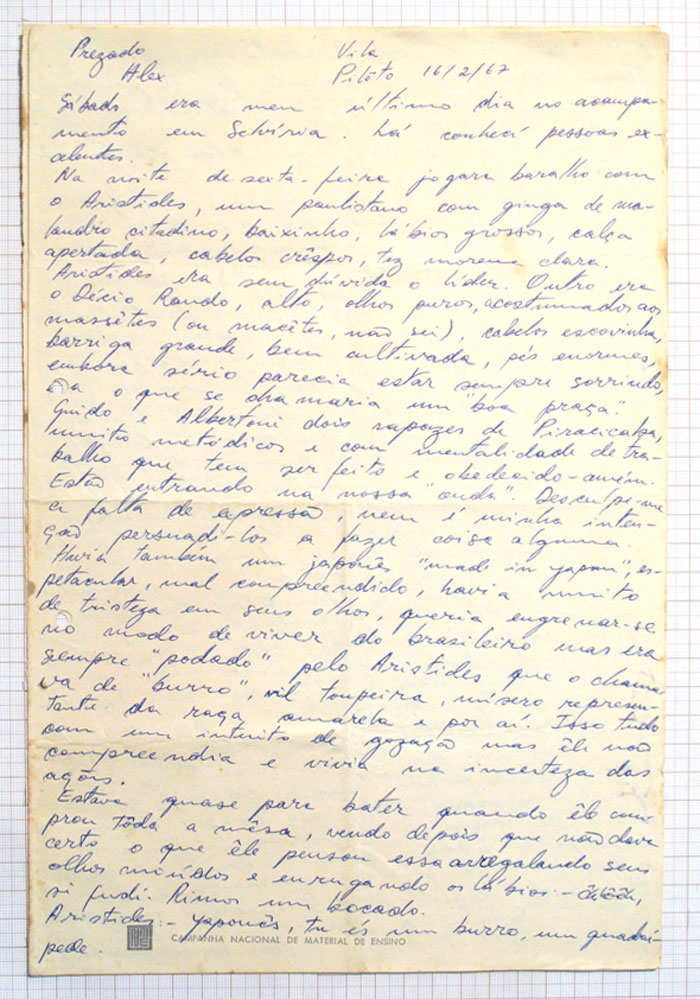 Prezado Vila
Alex Pilôto 16/2/67
Sábado era meu último dia no acampa-
mento em Selvíria. Lá conheci pessoas ex-
celentes.
Na noite de sexta-feira jogara baralho com
o Aristides, um paulistano com ginga de ma-
landro citadino, baixinho, lábios grossos, calça
apertada, cabelos crêspos, tez morena clara.
Aristides era sem dúvida o líder. Outro era
o Décio Rando, alto, olhos puros, acostumados aos
massêtes (ou macêtes, não sei), cabelos escovinha,
barriga grande, bem cultivada, pés enormes,
embora sério parecia estar sempre sorrindo,
era o que se chamaria um "boa praça".
Guido e Albertoni dois rapazes de Piracicaba,
muito metódicos e com mentalidade de tra-
balho que tem ser feito e obedecido-amém.
Estão entrando na nossa "onda". Desculpe-me
a falta de apressão, nem é minha inten-
ção persuadi-los a fazer coisa alguma.
Havia também um japonês "made in yapan", es-
petacular, mal compreendido, havia muito
de tristeza em seus olhos, queria engrenar-se
no modo de viver do brasileiro mas era
siempre "podado" pelo Aristides que o chama-
va de "burro", vil toupeira, mísero represen-
tante da raça amarela e por aí. Isso tudo
com um intuito de gozação mas êle não
compreendia e vivia na incerteza das
ações.
Estava quase para bater quando êle com-
prou tôda a mêsa, vendo depois que não dava
certo o que êle pensou essa arregalando seus
olhos miúdos e enrugando os lábios: -
si fudi. Rimos um bocado.
Aristides: - yaponês, tu és um burro, um quadrú-
pede.
CAMPANHA NACIONAL DE MATERIAL DE ENSINO